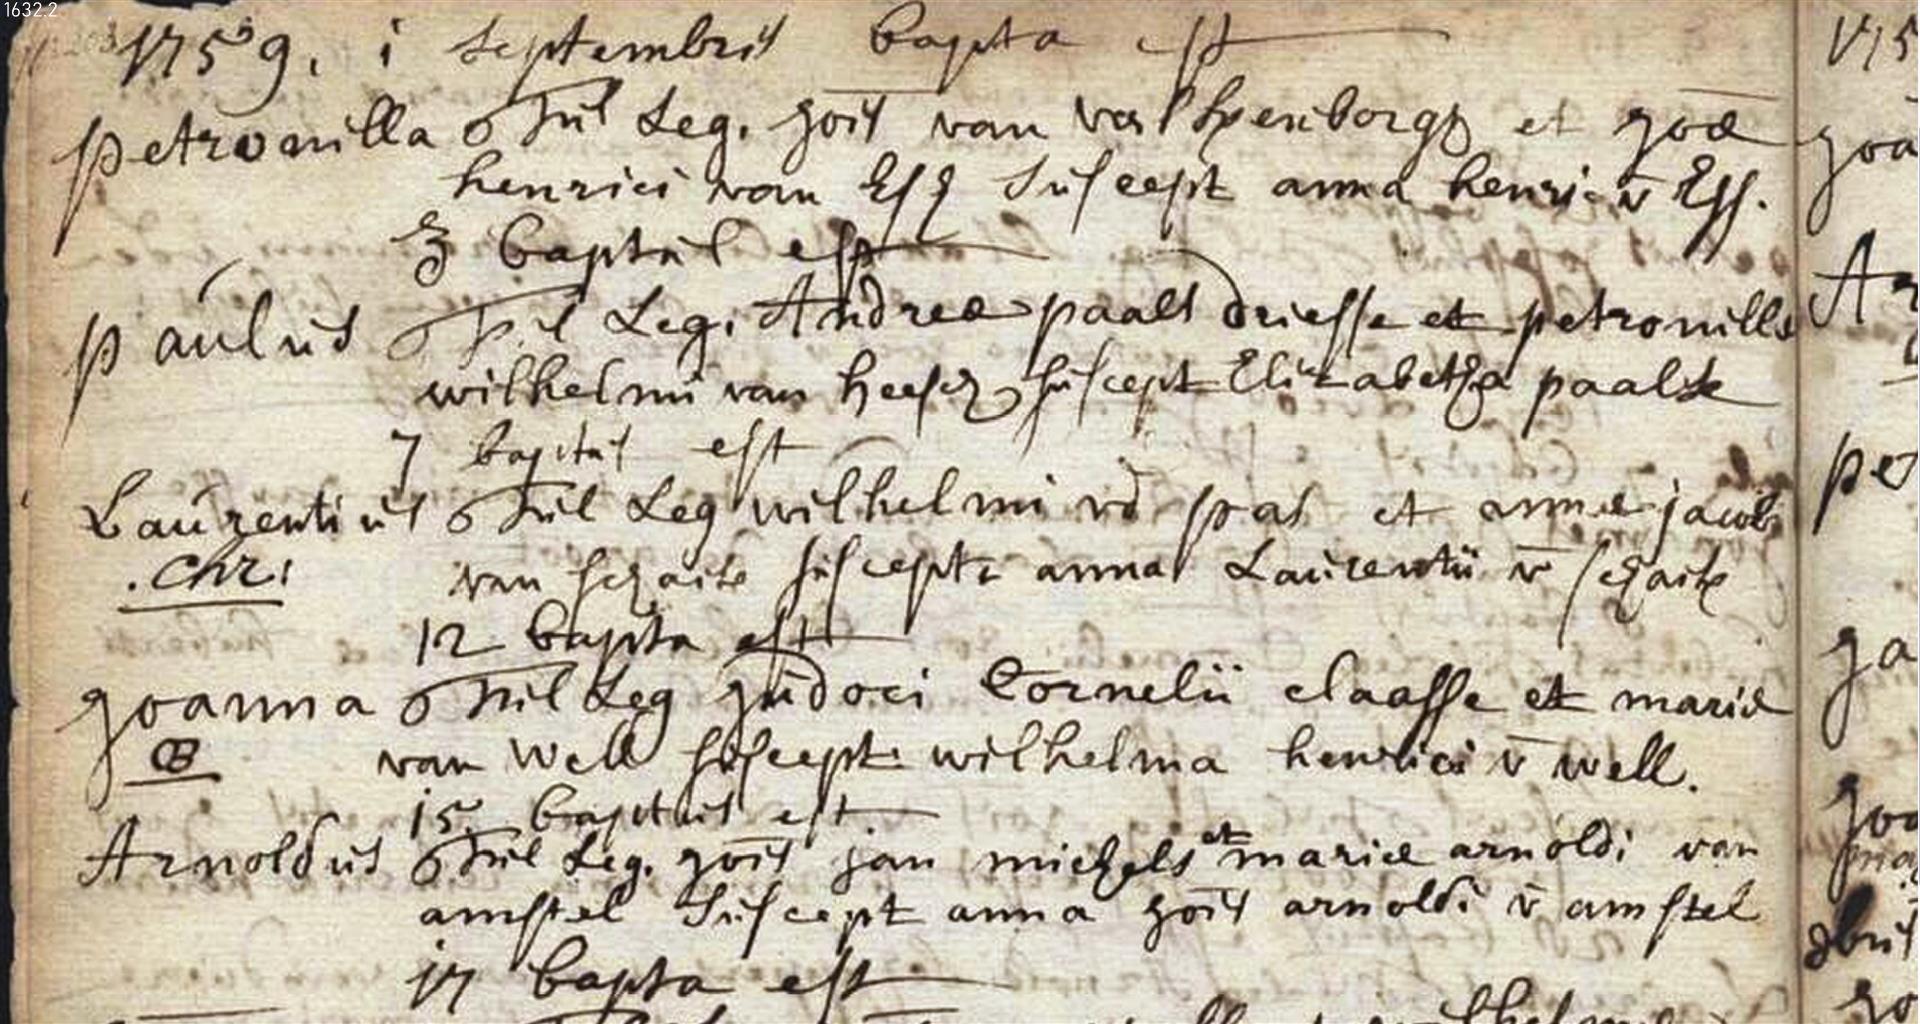 1632.2
1759. i septembris bapta est
petronilla fil Leg. jois van valkhenborgh et joae
henrici van Esch Suscept anna henrici v Ess.
3 baptus est
paulus fil Leg. Andreae paals driesse et petronillae
wilhelmi van heesch suscept Elizabetha paals
7 baptus est
Laurentius fil Leg wilhelmi vd pas et annae jacobi
.Chr. van schaik suscepit anna Laurentii v schaik
12 bapta est
joanna fil Leg judoci Cornelii claasse et mariae
van Well suscept wilhelma henrici v well.
15 baptus est
Arnoldus fil Leg. jois jan michels et mariae arnoldi van
amstel Suscept anna jois arnoldi v amstel
17 bapta est